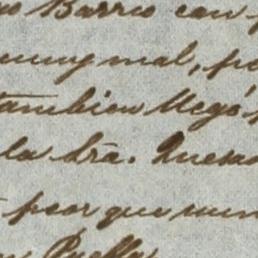 Barrio con
muy mal, po
tambien llegó
la Sra. Quesa
peor que nun
Puella